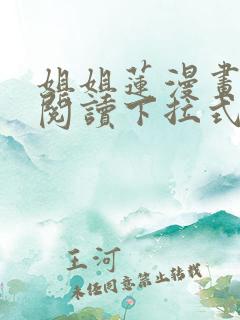 姐姐蓮漫畫
閱讀下拉式
王河
未经同意禁止转载